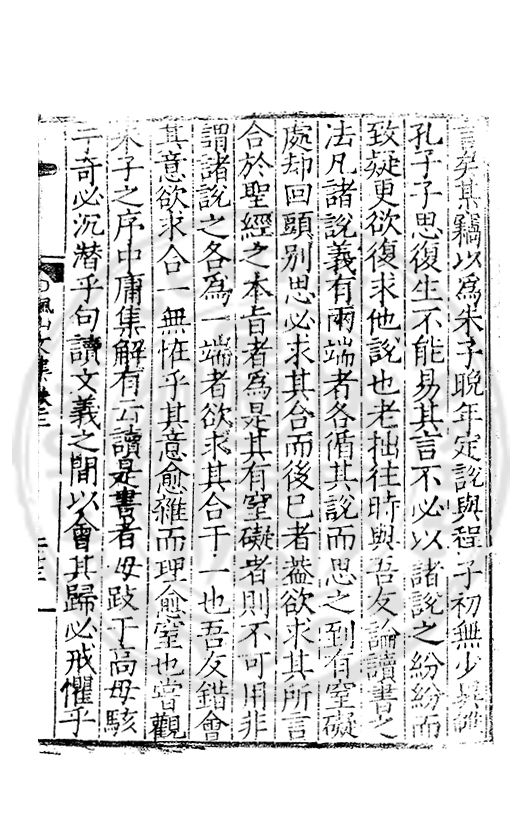 言矣其竊以爲朱子晚年定說與程子初無少異雖
孔子子思復生不能易其言不必以諸說之紛紛而
致疑更欲復求他說也老拙往時與吾友論讀書之
法凡諸說義有兩端者各循其說而思之到有窒礙
處却回頭別思必求其合而後已者蓋欲求其所言
合於聖經之本旨者爲是其有窒礙者則不可用非
謂諸說之各爲一端者欲求其合于一也吾友錯會
其意欲求合一無惟乎其意愈雜而理愈窒也嘗觀
朱子之序中庸集解有云讀是書者毋跂于高毋駭
于奇必沉潛乎句讀文義之間以會其歸必戒懼乎
楓山文集